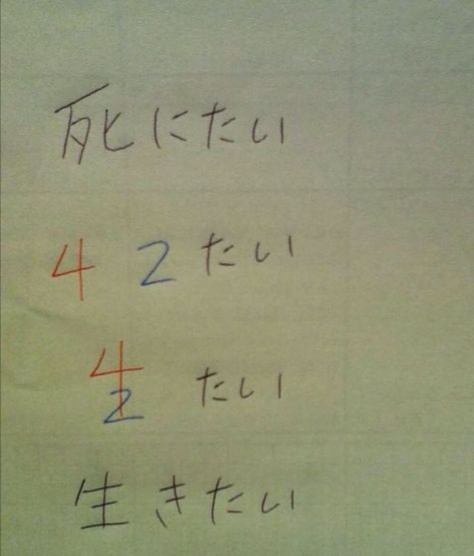 死にたい
42たい
42たい
生きたい